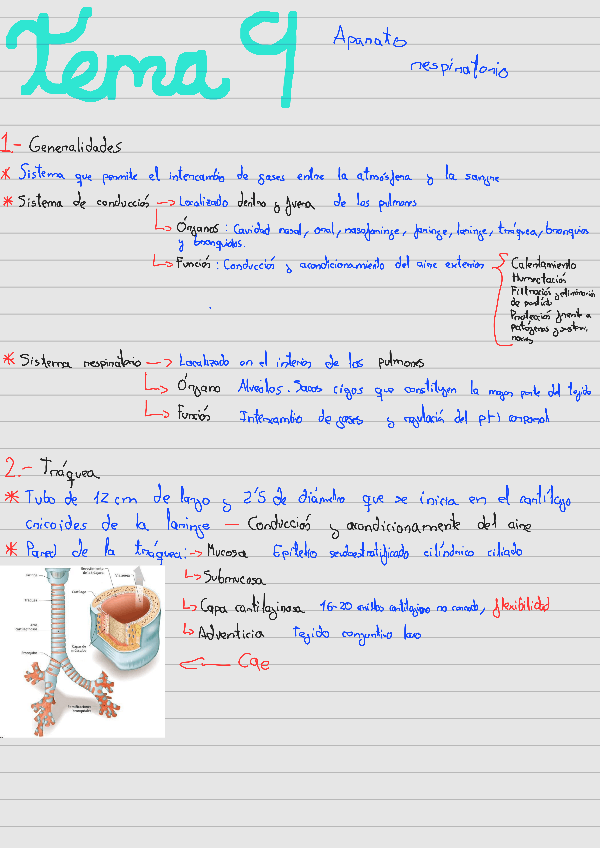 Tema 9
Aparato
respiratorio
1.- Generalidades
* Sistema que permite el intercambio de gases entre la atmósfera y la sangre
* Sistema de conducción -> Localizado dentro y fuera de los pulmones
-> Órganos: Cavidad nasal, oral, nasofaringe, faringe, laringe, tráquea, bronquios
y bronquiolos.
-> Función: Conducción y acondicionamiento del aire exterior
Calentamiento
Humectación
Filtración y eliminación
de partícula
Protección frente a
patógenos y sustan.
nocivas
* Sistema respiratorio -> Localizado en el interior de los pulmones
-> Órgano Alveolos. Sacos ciegos que constituyen la mayor parte del tejido
-> Función Intercambio de gases y regulación del pH corporal
2.- Tráquea
* Tubo de 12 cm de largo y 2'5 de diámetro que se inicia en el cartílago
cricoides de la laringe — Conducción y acondicionamiento del aire
* Pared de la tráquea: -> Mucosa Epitelio seudoestratificado cilíndrico ciliado
-> Submucosa
-> Capa cartilaginosa 16-20 anillos cartilaginosos no cerrados, flexibilidad
-> Adventicia Tejido conjuntivo laxo
<- Cae
Laringe
Tráquea
Cartílago
Bronquios
Ramificaciones
bronquiales